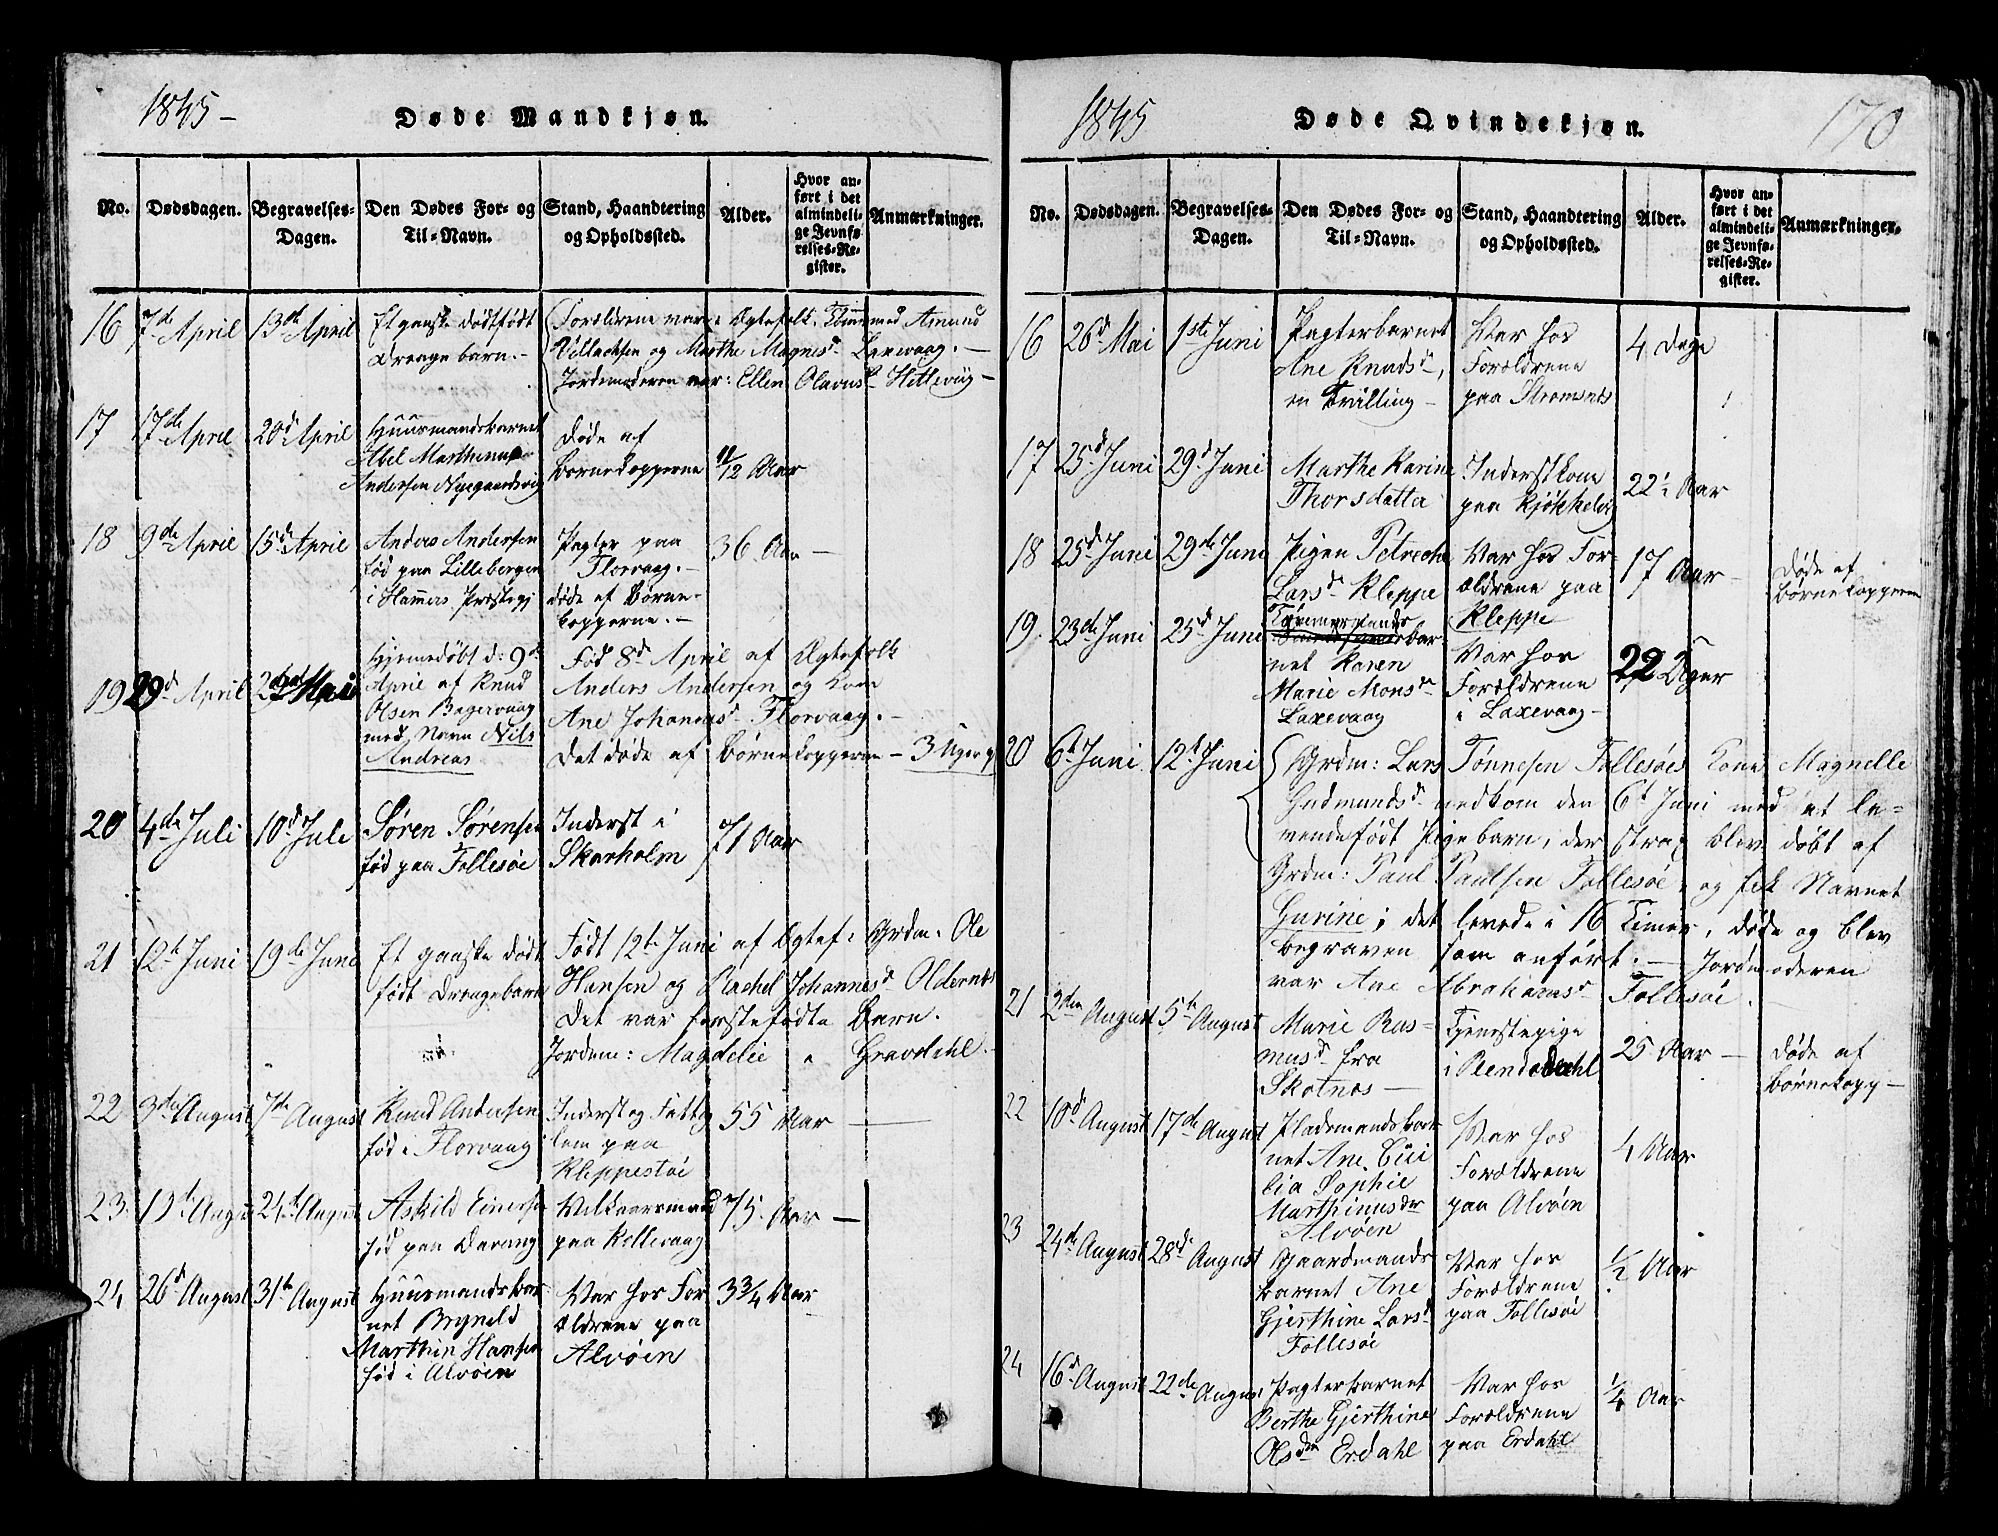 1845 –
Døde Mandkjøn.
No.
Dødsdagen.
Begravelses-
Dagen.
Den Dødes For- og
Til-Navn.
Stand, Haandtering
og Opholdssted.
Alder.
Hvor an-
ført i det
almindeli-
ge Jevnfø-
relses-Re-
gister.
Anmærkninger.
16 7de April 13de April Et ganske dødfødt
Drengebarn. –
Forældrene var: Ægtefolk. Tømmermd Amund
Villachsen og Marthe Magnesd. Laxevaag. –
Jordemoderen var: Ellen Olavusd. Hetlevig –
17 17de April 20d April Huusmandsbarnet
Abel Marthinus
Andersen Nygaardsvig
Døde af
Børnekopperne
11/12 Aar
18 9de April 15d April Anders Andersen
fød paa Lillebergen
i Hammers Præstegj
Pagter paa
Florvaag. –
døde af Børne-
kopperne. –
36 Aar –
19 29d April 2den Mai
Hjemedøbt d: 9de
April af Knud
Olsen Bagervaag
med Navn Nils
Andreas
Fød 8d April af Ægtefolk
Anders Andersen og Kone
Ane Johannesd. Florvaag. –
Det døde af Børnekopperne – 3 Uger g
20 4de Juli 10d Juli Søren Sørensen
fød paa Follesøe
Inderst i
Skarholm
71 Aar
21 12te Juni 19de Juni Et ganske død
født Drengebarn
Født 12te Juni af Ægtef: Grdm. Ole
Hansen og Rachel Johannesd. Oldernes
Det var førstefødte Barn.
Jordem: Magdelie Gravdahl.
22 3die August 7de August Knud Andersen
fød i Florvaag
Inderst og Fattig
lem paa
Kleppestøe
55 Aar
23 19de August 24de August Askild Einersen
fød paa Davang
Vilkaarsmand
paa Kollevaag
75 Aar –
24 26d August 31te August Huusmandsbar
net Bryneld
Marthin Hansen
fød i Alvøen
Var hos For
ældrene paa
Alvøen
3 3/4 Aar
1845
Døde Qvindekjøn.
170
No.
Dødsdagen.
Begravelses-
Dagen.
Den Dødes For- og
Til-Navn.
Stand, Haandtering
og Opholdssted.
Alder.
Hvor an-
ført i det
almindeli-
ge Jevnfø-
relses-Re-
gister.
Anmærkninger.
16 26d Mai 1ste Juni Pagterbarnet
Ane Knudsd.,
en Tvilling –
Var hos
Forældrene
paa Strømsnes
4 Dage
17 25d Juni 29d Juni Marthe Karine
Thorsdatter
Inderstkone
paa Kjøkkelvig
22 1/2 Aar
18 25d Juni 29de Juni Pigen Petreche
Larsd. Kleppe
Var hos For-
ældrene paa
Kleppe
17 Aar –
Døde af
Børnekopperne
19 23de Juni 25d Juni Tømmermands
bar
net Karen
Marie Monsd.
Laxevaag
Var hos
Forældrene
i Laxevaag –
22 Dager
20 6te Juni 12te Juni Grdm: Lars Tønnesen Follesøes Kone Magnelle
Gudmundsd. nedkom den 6te Juni med et le-
vendefødt Pigebarn, der strax blev døbt af
Grdm: Paul Paulsen Follesøe, og fik Navnet
Gurine; det levede i 16 Timer, døde og blev
begraven som anført. – Jordmoderen
var Ane Abrahamsd. Follesøe.
21 2den August 5te August Marie Ras-
musd. fra
Skotnes –
Tjenestepige
i Rendedahl
25 Aar –
Døde af
Børnekopp –
22 10d August 17de August Pladsmandsbar
net Ane Cici
lia Sophie
Marthinusdr
Alvøen
Var hos
Forældrene
paa Alvøen
4 Aar
23 24de August 28de August Gaardmands
barnet Ane
Gjerthine Larsd.
Follesøe
Var hos
Forældrene
paa Follesøe
1/2 Aar
24 16d August 22de August Pagterbarnet
Berthe Gjerthine
Olsdtr Erdahl
Var hos
Forældrene
paa Erdahl
1/4 Aar